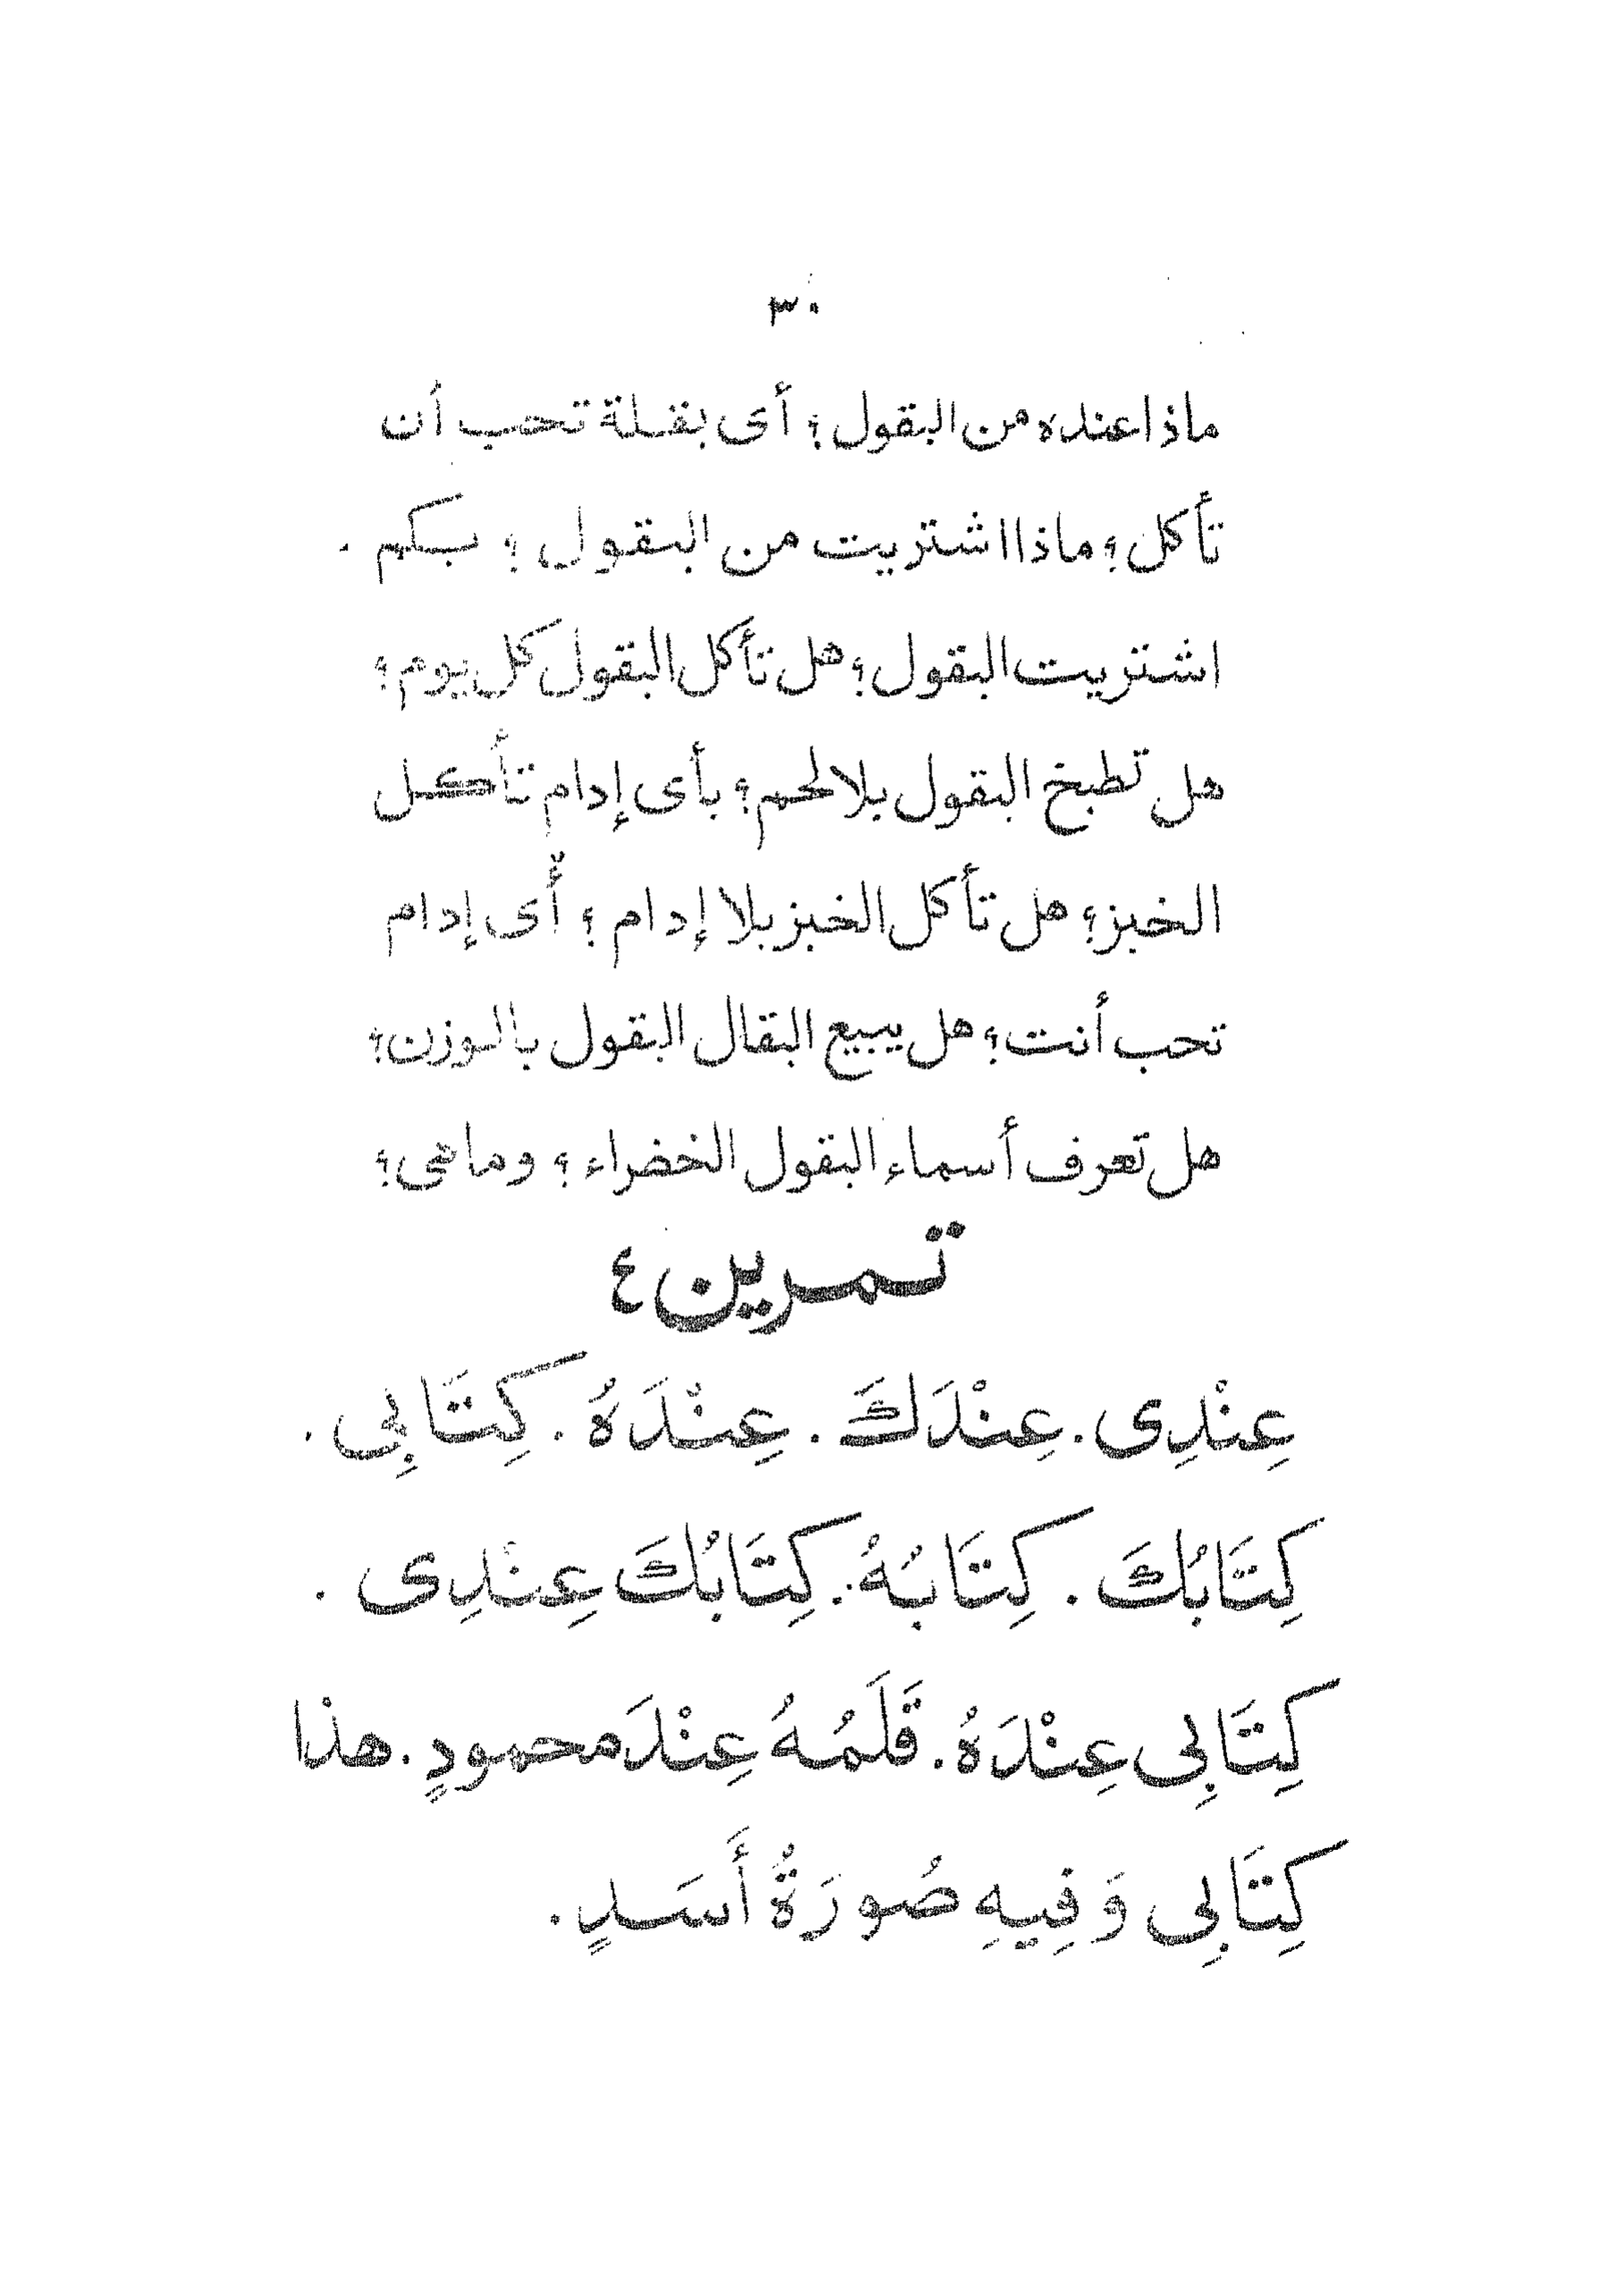 ٣٠
ماذا عنده من البقول؟ أى بقلة تحب أن
تأكل؟ ماذا اشتريت من البقول؟ بكم .
اشتريت البقول؟ هل تأكل البقول كل يوم؟
هل تطبخ البقول بلا لحم؟ بأى إدام تأكل
الخبز؟ هل تأكل الخبز بلا إدام؟ أى إدام
تحب أنت؟ هل يبيع البقال البقول بالوزن؟
هل تعرف أسماء البقول الخضراء؟ وما هى؟
تمرين ٤
عِنْدِى. عِنْدَكَ. عِنْدَهُ. كِتَابِي.
كِتَابُكَ. كِتَابُهُ. كِتَابُكَ عِنْدِى.
كِتَابِي عِنْدَهُ. قَلَمُهُ عِنْدَ محمودٍ. هذا
كِتَابِي وَفِيهِ صُورَةُ أَسَدٍ.